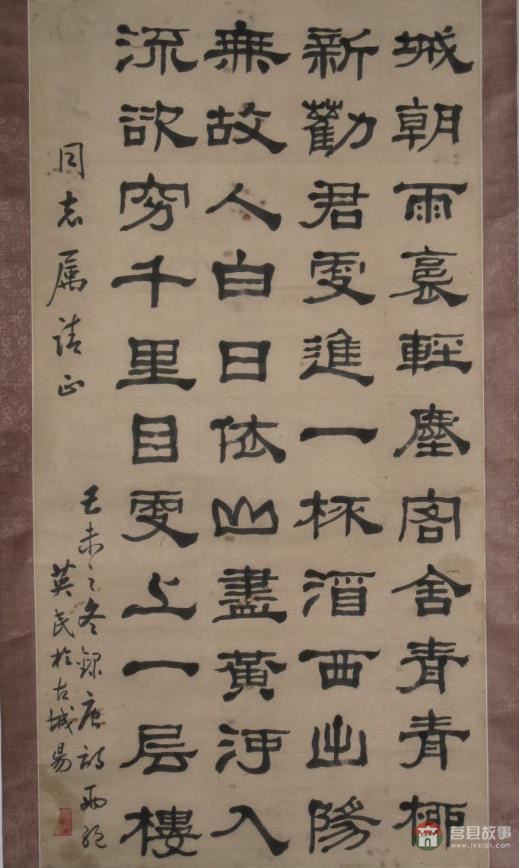 城朝雨裛輕塵客舍青青柳
新勸君更進一杯酒西出陽
無故人白日依山盡黃河入
流欲穷千里目更上一层樓
同志属請正
己未之冬録唐詩兩絕
英民於古城
莒县故事
www.jvxian.com